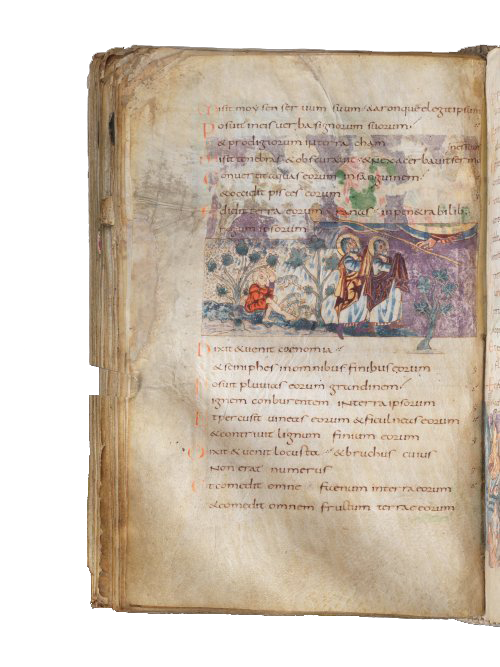 Misit moysen seruum suum aaron quem elegit ipsum
Posuit in eis uerba signorum suorum
& prodigiorum in terra cham
Misit tenebras & obscurauit
Conuertit aquas eorum in sanguinem
& occidit pisces eorum
Edidit terra eorum ranas in penetrabilibus
regum ipsorum
Dixit & uenit coenomia
& sciniphes in omnibus finibus eorum
Posuit pluuias eorum grandinem
ignem conburentem in terra ipsorum
Et percussit uineas eorum & ficulneas eorum
& contriuit lignum finium eorum
Dixit & uenit locusta & bruchus cuius
non erat numerus
Et comedit omne faenum in terra eorum
& comedit omnem fructum terrae eorum